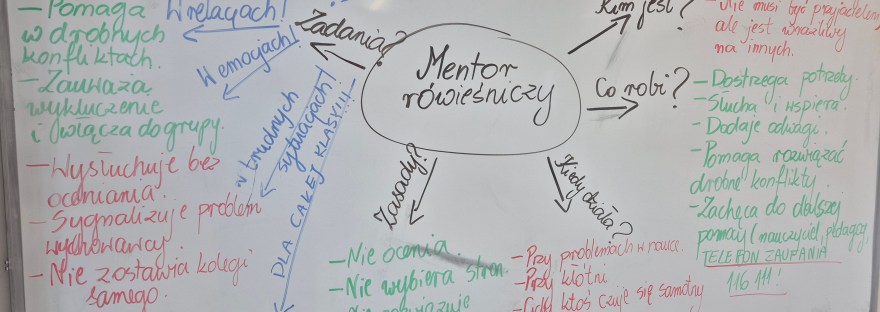 Mentor
rówieśniczy
Zadania?
W relacjach!
W emocjach!
w trudnych
sytuacjach!
DLA CAŁEJ KLASY!!!
— Pomaga
w drobnych
konfliktach.
— Zauważa
wykluczenie
i włącza do grupy.
— Wysłuchuje bez
oceniania.
— Sygnalizuje problem
wychowawcy.
— Nie zostawia kolegi
samego.
Zasady?
— Nie ocenia
— Nie wybiera stron.
Kiedy działa?
— Przy problemach w nauce.
— Przy kłótni
— Gdy ktoś czuje się samotny
Kim jest?
— Nie musi być przyjacielem,
ale jest wrażliwy
na innych.
Co robi?
— Dostrzega potrzeby.
— Słucha i wspiera.
— Dodaje odwagi.
— Pomaga rozwiązać
drobne konflikty.
— Zachęca do dalszej
pomocy (nauczyciel, pedagog,
TELEFON ZAUFANIA
116 111!